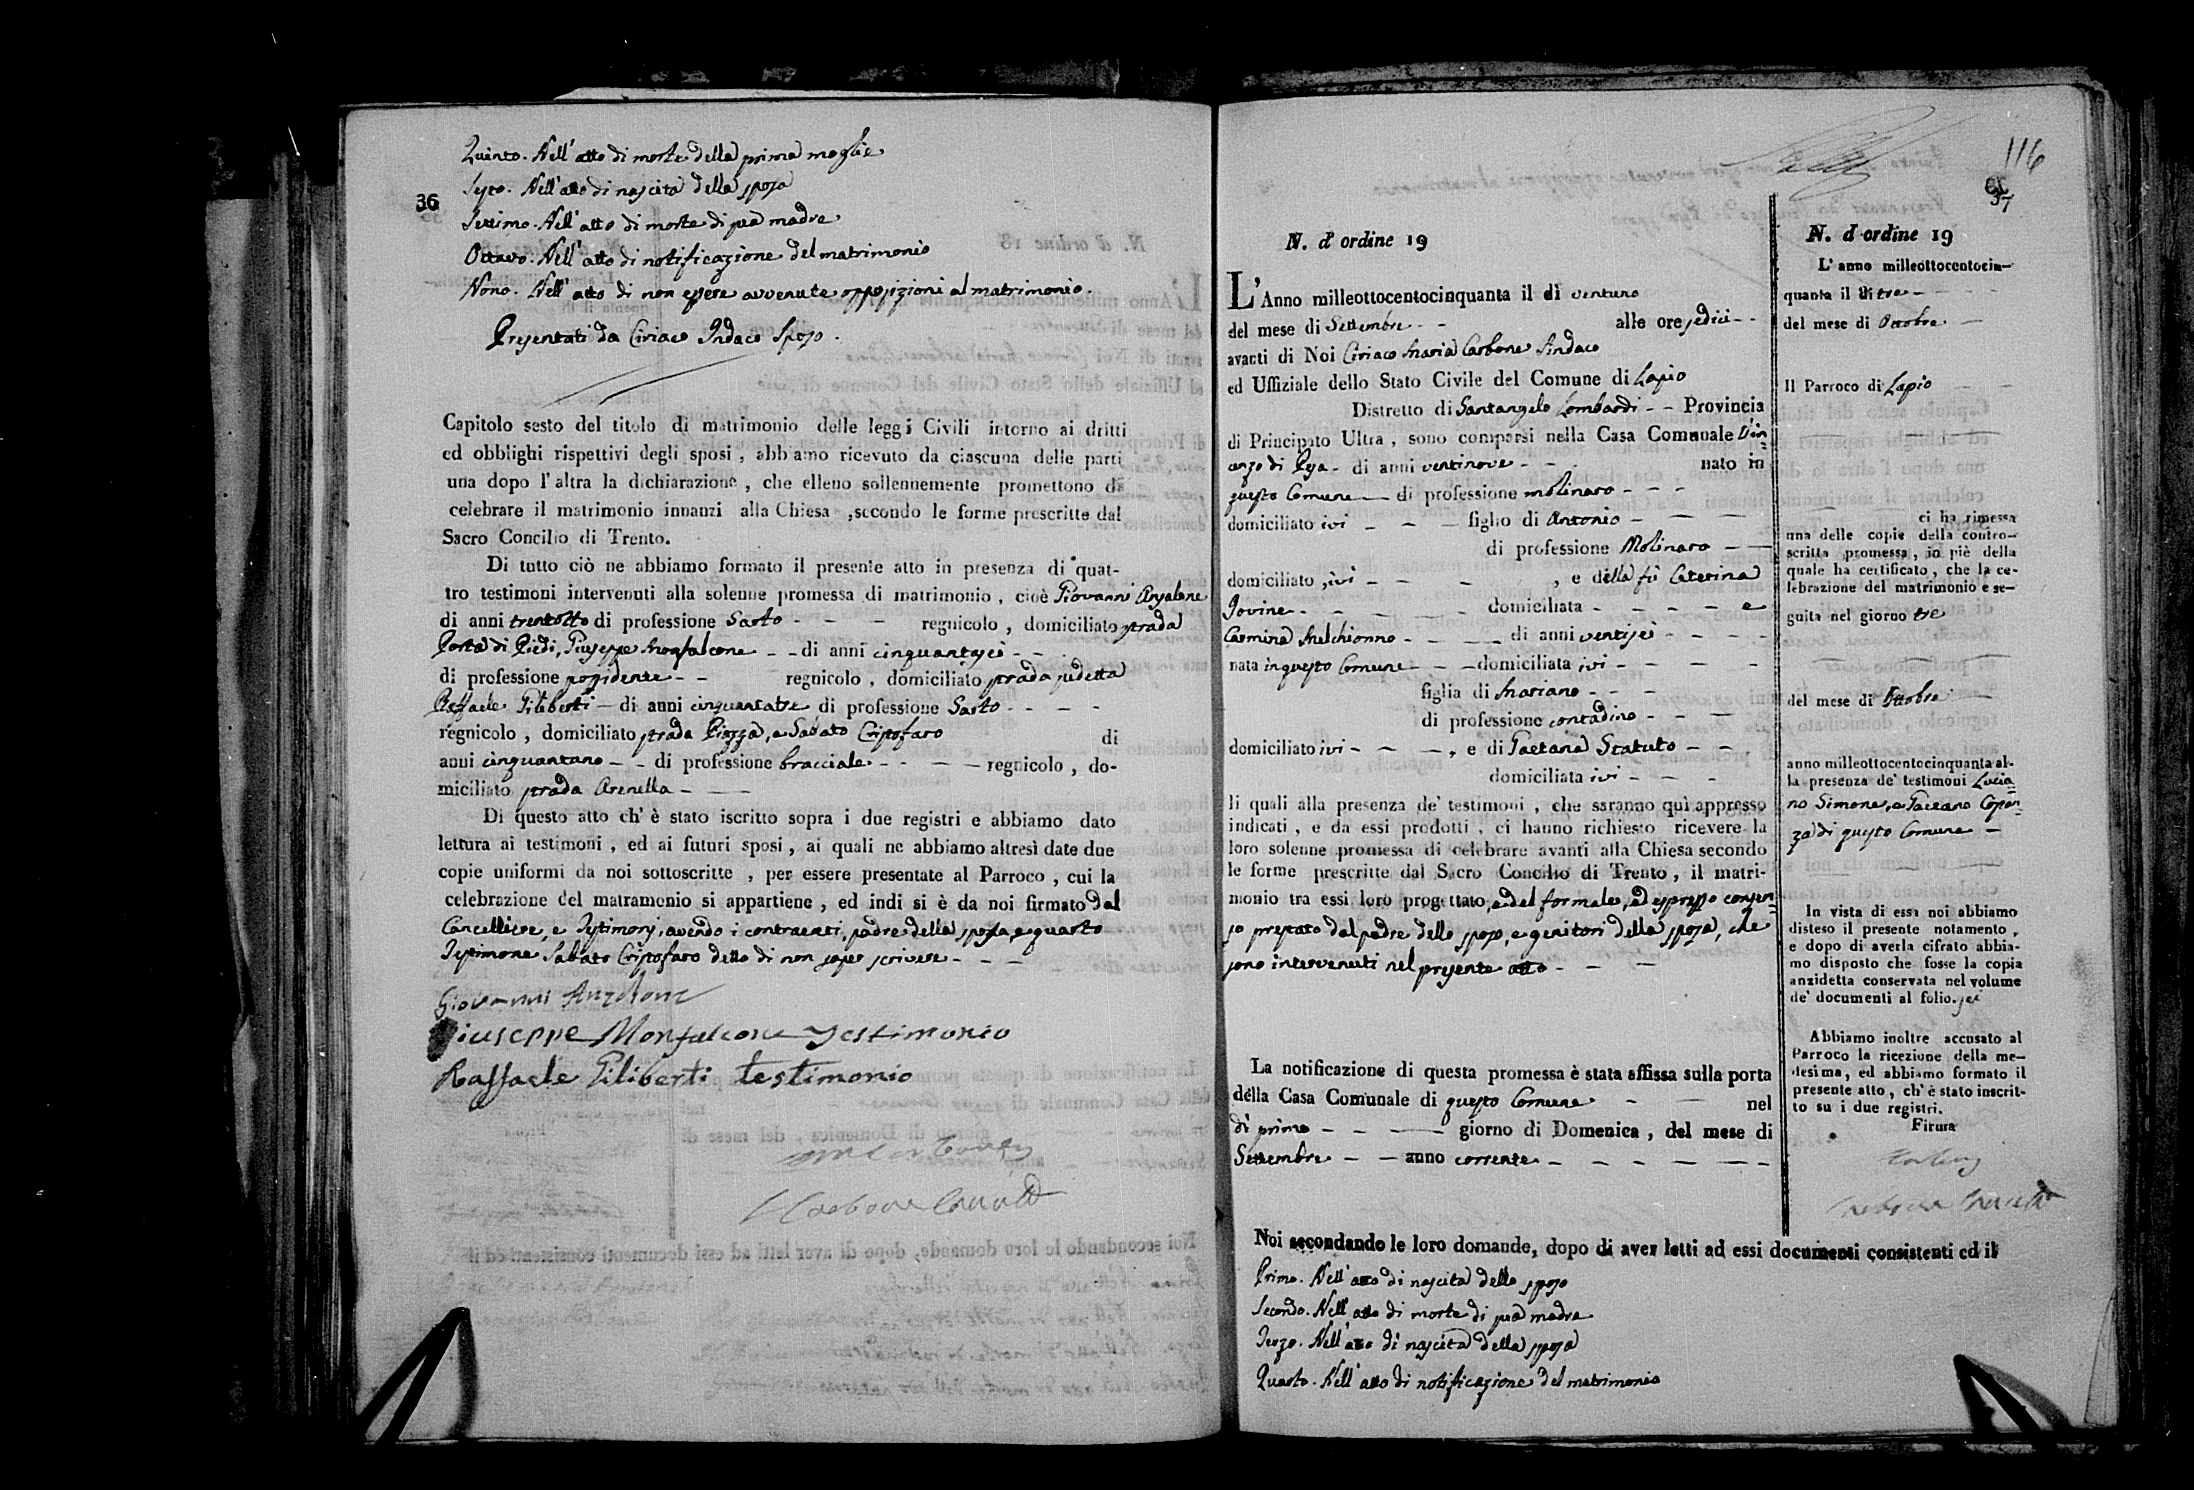 Quinto. Nell'atto di morte della prima moglie
Sesto. Nell'atto di nascita della sposa
36
Settimo. Nell'atto di morte di sua madre
Ottavo. Nell'atto di notificazione del matrimonio
Nono. Nell'atto di non essere avvenute opposizioni al matrimonio.
Presentati da Ciriaco Indaco Sposo.
Capitolo sesto del titolo di matrimonio delle leggi Civili intorno ai dritti
ed obblighi rispettivi degli sposi, abbiamo ricevuto da ciascuna delle parti
una dopo l'altra la dichiarazione, che elleno sollennemente promettono di
celebrare il matrimonio innanzi alla Chiesa, secondo le forme prescritte dal
Sacro Concilio di Trento.
Di tutto ciò ne abbiamo formato il presente atto in presenza di quat-
tro testimoni intervenuti alla solenne promessa di matrimonio, cioè Giovanni Anzalone
di anni trentotto di professione Sarto - - - regnicolo, domiciliato strada
Porta di Piedi, Giuseppe Monfalcone - - di anni cinquantasei - -
di professione possidente - - regnicolo, domiciliato strada sudetta
Raffaele Piliberti - di anni cinquantatre di professione Sarto - - - -
regnicolo, domiciliato strada Piazza, e Sabato Cristofaro di
anni cinquantano - - di professione bracciale - - - - regnicolo, do-
miciliato strada Arenella - -
Di questo atto ch'è stato iscritto sopra i due registri e abbiamo dato
lettura ai testimoni, ed ai futuri sposi, ai quali ne abbiamo altresì date due
copie uniformi da noi sottoscritte, per essere presentate al Parroco, cui la
celebrazione del matramonio si appartiene, ed indi si è da noi firmato dal
Cancelliere, e Testimonj, avendo i contraenti, padre della sposa, e quarto
Testimone Sabato Cristofaro detto di non saper scrivere - - -
Giovanni Anzalone
Giuseppe Monfalcone Testimonio
Raffaele Piliberti testimonio
116
37
N. d'ordine 19
L'Anno milleottocentocinquanta il dì ventuno
del mese di Settembre - - alle ore sedici - -
avanti di Noi Ciriaco Maria Carbone Sindaco
ed Uffiziale dello Stato Civile del Comune di Lapio
Distretto di Santangelo Lombardi - - Provincia
di Principato Ultra, sono comparsi nella Casa Comunale Vin=
cenzo di Resa - di anni ventinove - - - nato in
questo Comune - di professione molinaro - - -
domiciliato ivi - - - figlio di Antonio - - - -
di professione Molinaro - -
domiciliato, ivi - - - , e della fù Caterina
Jovine - - - - - domiciliata - - - - - e
Carmina Melchionno - - - - di anni ventisei - - - -
nata in questo Comune - - - domiciliata ivi - - - -
figlia di Mariano - - -
di professione contadino - - - -
domiciliato ivi - - - , e di Gaetana Statuto - -
domiciliata ivi - - -
li quali alla presenza de' testimoni, che saranno quì appresso
indicati, e da essi prodotti, ci hanno richiesto ricevere la
loro solenne promessa di celebrare avanti alla Chiesa secondo
le forme prescritte dal Sacro Concilio di Trento, il matri-
monio tra essi loro progettato, e del formale, ed espresso consen=
so prestato dal padre dello sposo, e genitori della sposa, che
sono intervenuti nel presente atto - - -
La notificazione di questa promessa è stata affissa sulla porta
della Casa Comunale di questo Comune - - nel
dì primo - - - giorno di Domenica, del mese di
Settembre - - anno corrente - - - - - -
Noi secondando le loro domande, dopo di aver letti ad essi documenti consistenti ed il
Primo. Nell'atto di nascita dello sposo
Secondo. Nell'atto di morte di sua madre
Terzo. Nell'atto di nascita della sposa
Quarto. Nell'atto di notificazione del matrimonio
N. d'ordine 19
L'anno milleottocentocin-
quanta il dì tre - - - -
del mese di Ottobre - -
Il Parroco di Lapio - -
ci ha rimessa
una delle copie della contro-
scritta promessa, in piè della
quale ha certificato, che la ce-
lebrazione del matrimonio e se-
guita nel giorno tre
del mese di Ottobre -
anno milleottocentocinquanta al-
la presenza de' testimoni Lucia=
no Simone, e Gaetano Copon=
za di questo Comune -
In vista di essa noi abbiamo
disteso il presente notamento,
e dopo di averla cifrato abbia-
mo disposto che fosse la copia
anzidetta conservata nel volume
de' documenti al folio. sei
Abbiamo inoltre accusato al
Parroco la ricezione della me-
desima, ed abbiamo formato il
presente atto, ch'è stato inscrit-
to su i due registri.
Firma